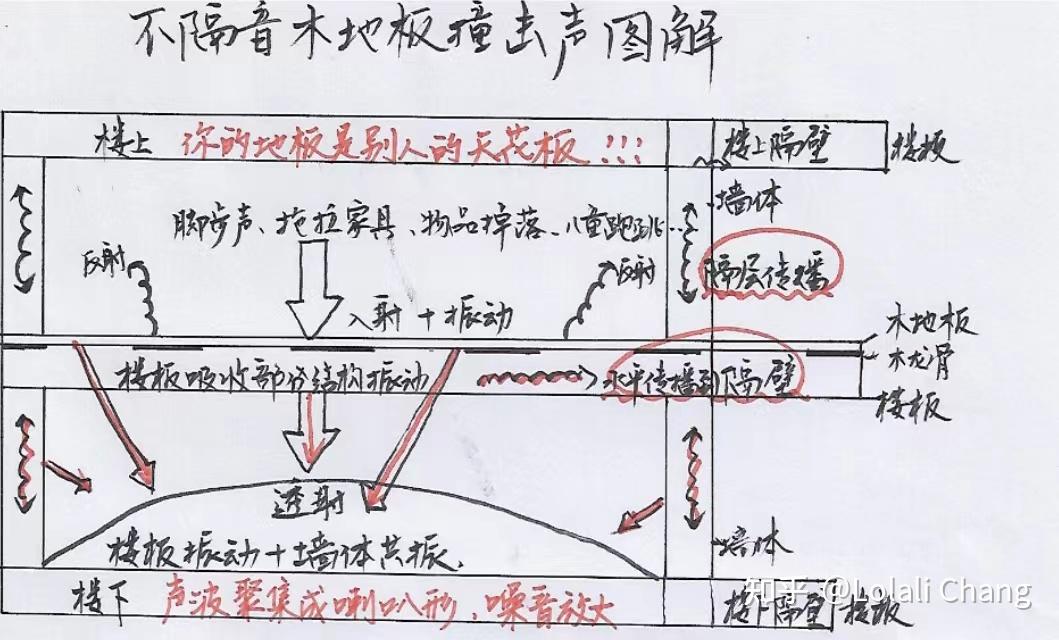 不隔音木地板撞击声图解
楼上 你的地板是别人的天花板!!!
楼上隔壁
楼板
墙体
脚步声、拖拉家具、物品掉落、儿童跑跳…
反射
反射
隔层传播
入射+振动
木地板
木龙骨
楼板吸收部分结构振动
水平传播到隔壁
楼板
透射
楼板振动+墙体共振.
墙体
楼下 声波聚集成喇叭形、噪音放大
楼下隔壁
楼板
知乎 @Lolali Chang